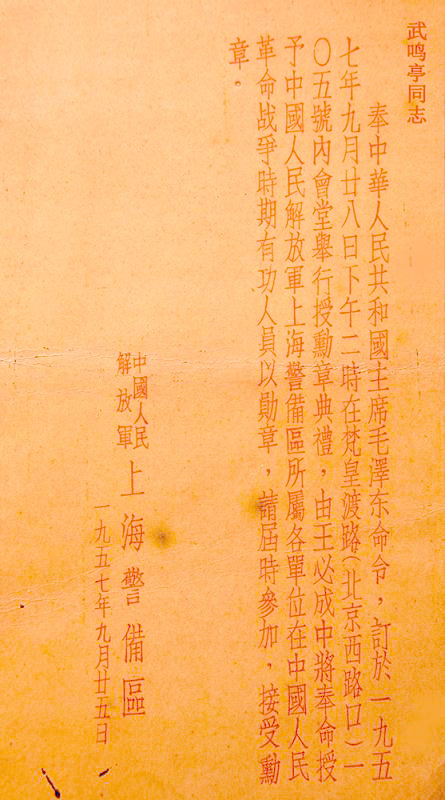 武鸣亭同志
奉中華人民共和國主席毛澤东命令，訂於一九五
七年九月廿八日下午二時在梵皇渡路（北京西路口）一
〇五號內會堂舉行授勳章典禮，由王必成中將奉命授
予中國人民解放軍上海警備區所屬各單位在中國人民
革命战爭時期有功人員以勛章，請屆時參加，接受勳
章。
中國人民
解放軍
上海警備區
一九五七年九月廿五日